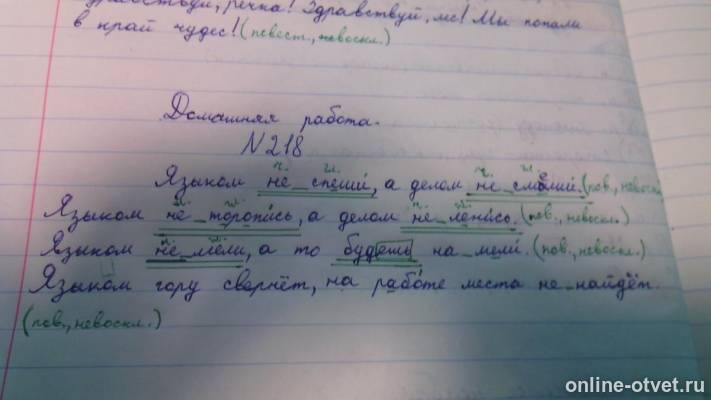 Здравствуй, речка! Здравствуй, лес! Мы попали
в край чудес! (повест., невоскл.)
Домашняя работа.
N218
Языком не спеши, а делом не смеши. (пов., невоскл.)
Языком не торопись, а делом не ленись. (пов., невоскл.)
Языком не мели, а то будешь на мели. (пов., невоскл.)
Языком гору свернёт, на работе места не найдёт.
(пов., невоскл.)
online-otvet.ru